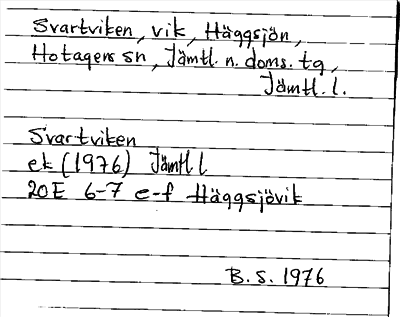 Svartviken, vik, Häggsjön,
Hotagens sn, Jämtl. n. doms. tg,
Jämtl. l.
Svartviken
ek (1976) Jämtl l
20E 6-7 e-f Häggsjövik
B. S. 1976